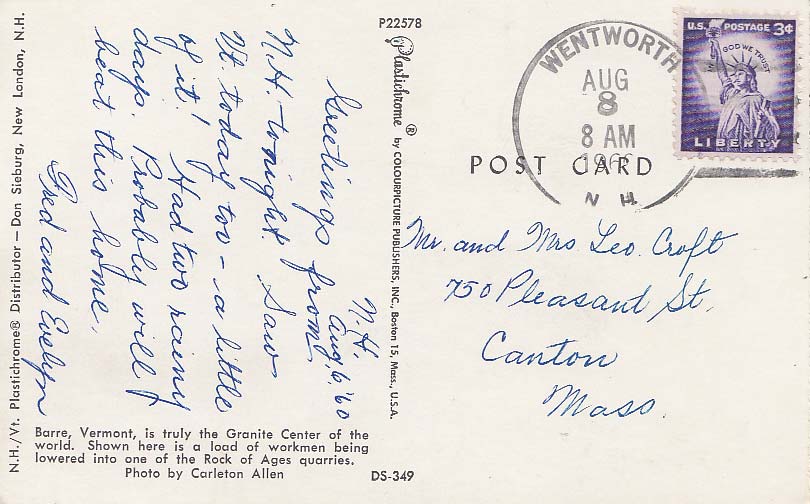 P22578
WENTWORTH
AUG
8
8 AM
1960
N. H.
U.S. POSTAGE 3¢
IN GOD WE TRUST
LIBERTY
POST CARD
N.H.
Aug, 6, '60
Greetings from
N.H. tonight. Saw
Vt. today too - a little
of it! Had two rainy
days. Probably will
beat this home.
Fred and Evelyn
Mr. and Mrs Leo. Croft
750 Pleasant St.
Canton
Mass.
Plastichrome ® by COLOURPICTURE PUBLISHERS, INC., Boston 15, Mass., U.S.A.
N.H./Vt. Plastichrome® Distributor — Dan Sieburg, New London, N.H.
Barre, Vermont, is truly the Granite Center of the
world. Shown here is a load of workmen being
lowered into one of the Rock of Ages quarries.
Photo by Carleton Allen
DS-349